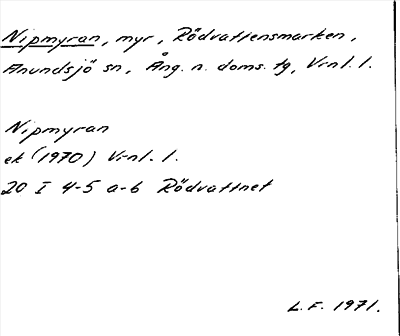 Nipmyran, myr, Rödvattensmarken,
Anundsjö sn, Ång. n. doms. tg, Vnl. l.
Nipmyran
ek (1970) Vnl. l.
20 I 4-5 a-b Rödvattnet
L.F. 1971.